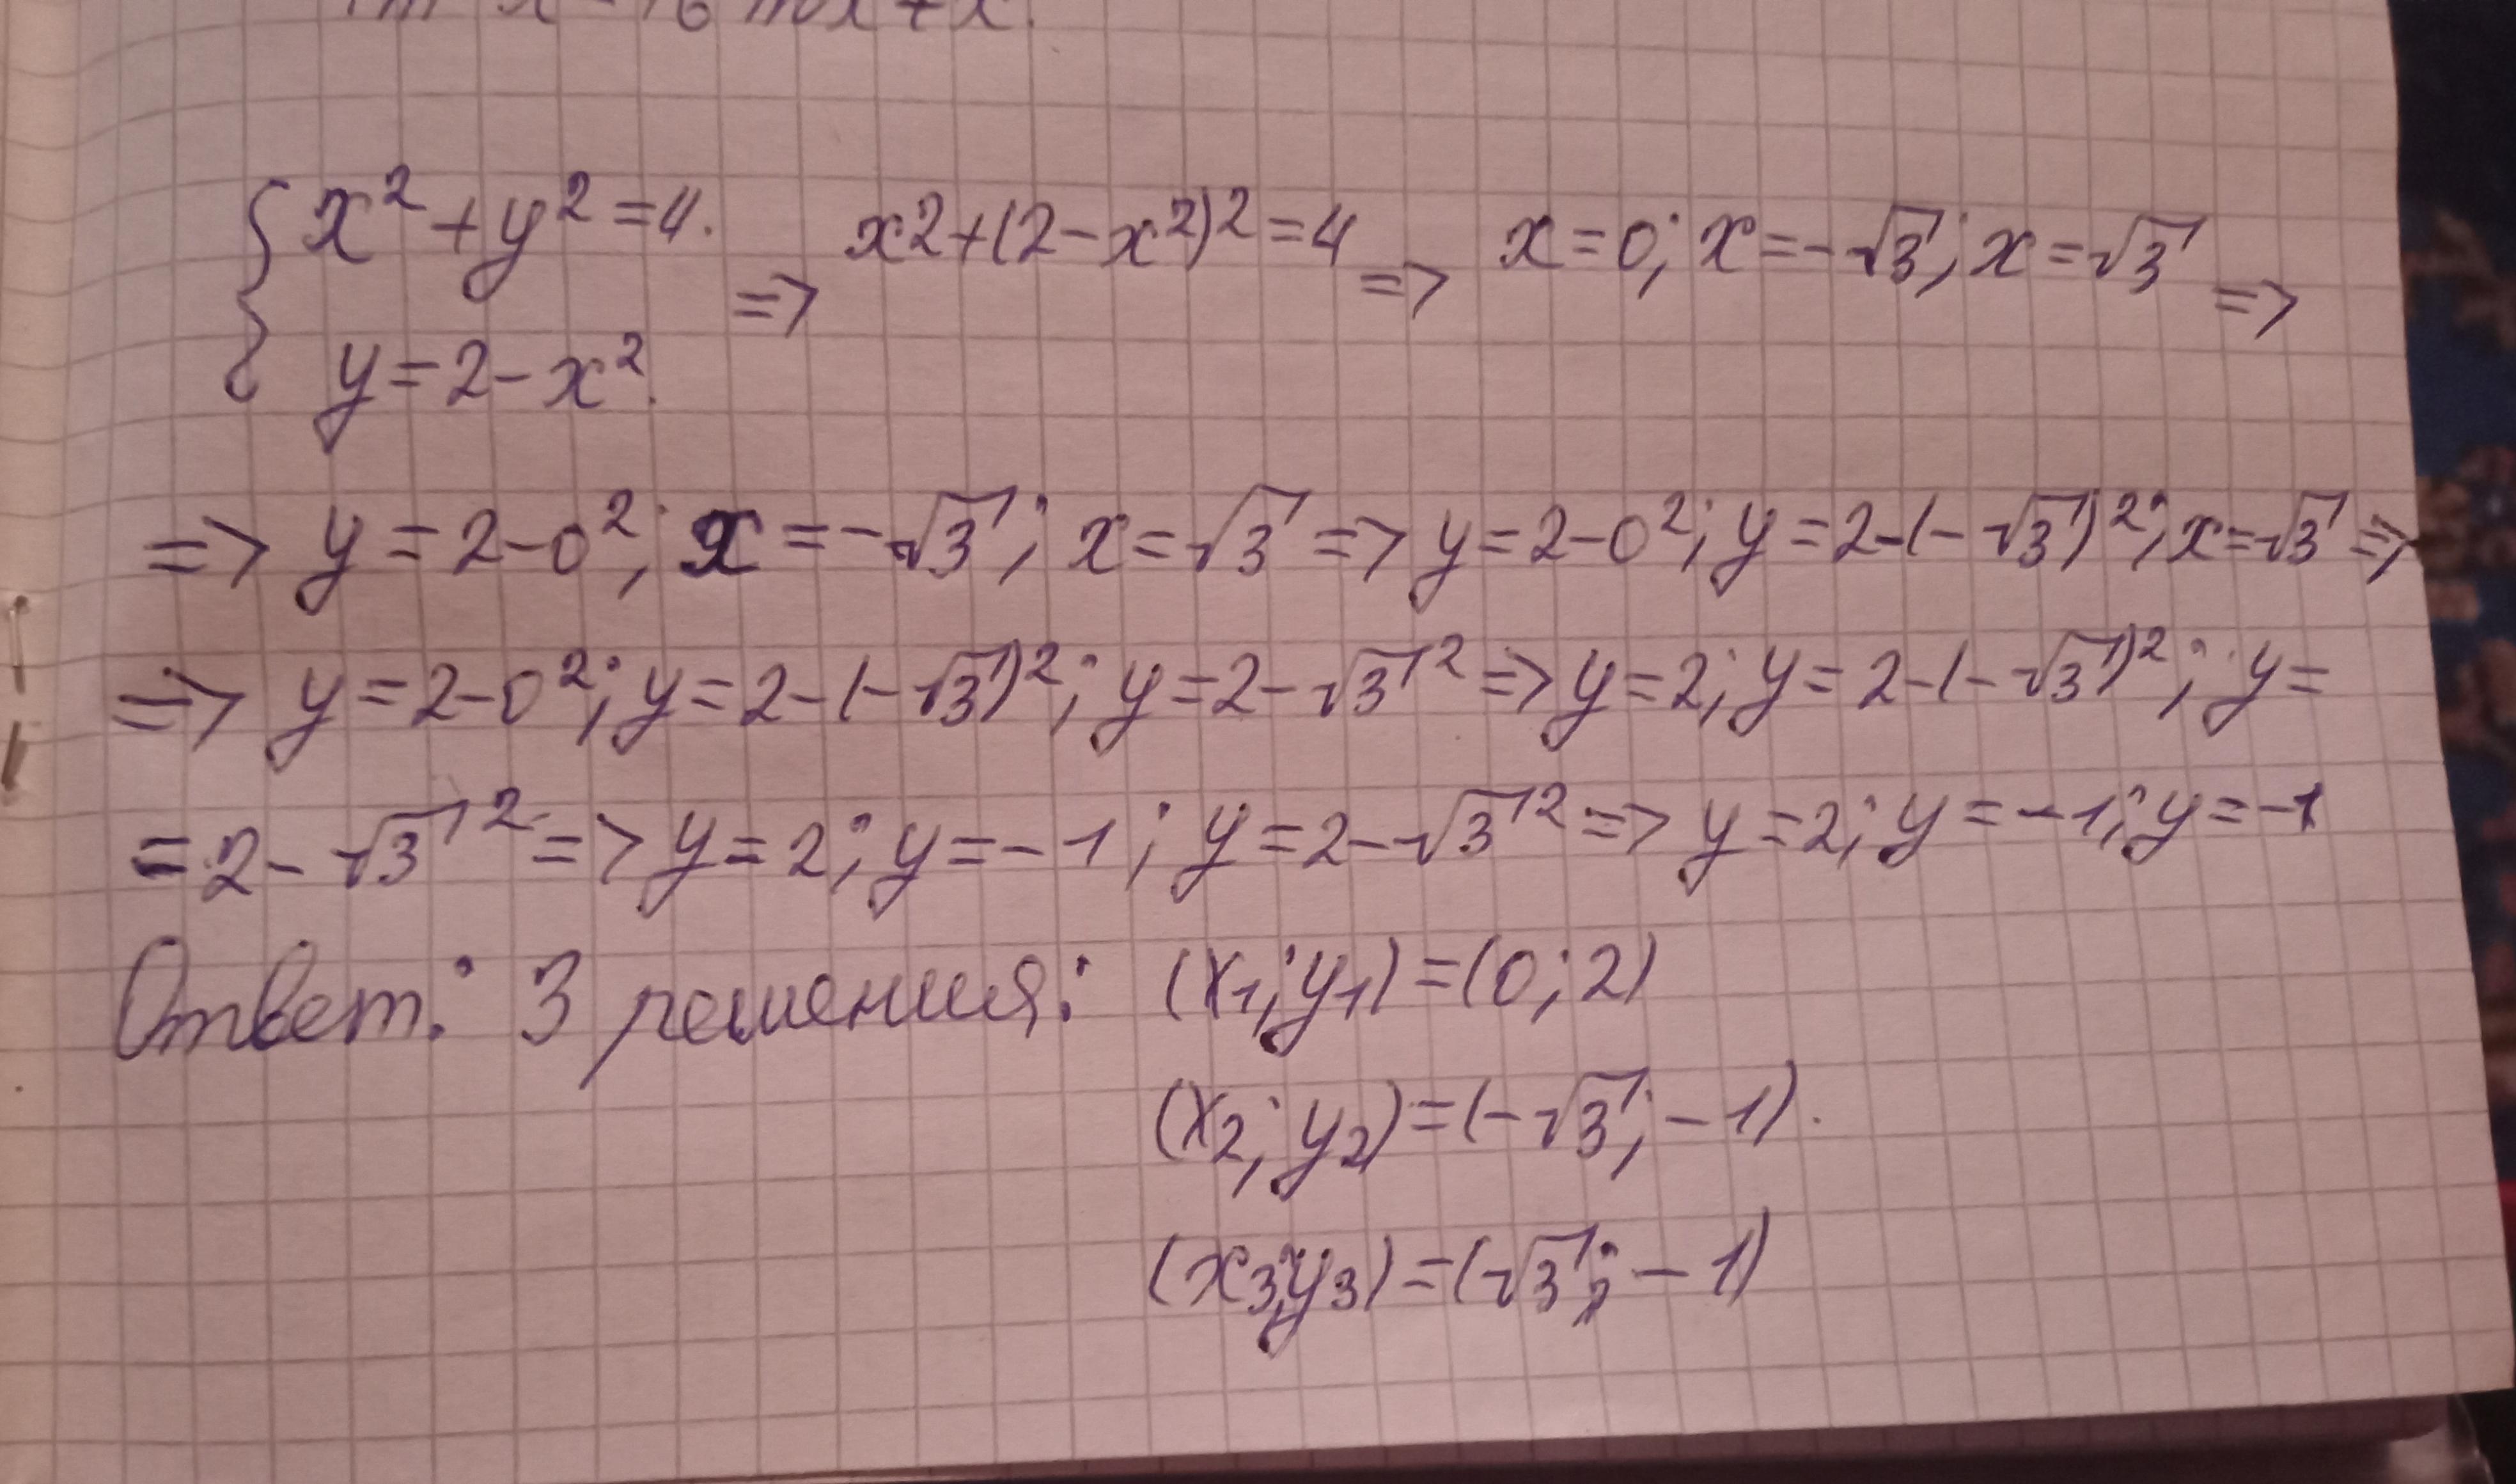 x² + y² = 4. => x2+(2-x²)² = 4 => x = 0; x = -√3; x = √3 =>
y = 2 - x².
=> y = 2 - 0²; x = -√3; x = √3 => y = 2 - 0²; y = 2 - (-√3)²; x = √3 =>
=> y = 2 - 0²; y = 2 - (-√3)²; y = 2 - √3² => y = 2; y = 2 - (-√3)²; y =
= 2 - √3² => y = 2; y = -1; y = 2 - √3² => y = 2; y = -1; y = -1
Ответ: 3 решения: (x₁; y₁) = (0; 2)
(x₂; y₂) = (-√3; -1).
(x₃; y₃) = (√3; -1)